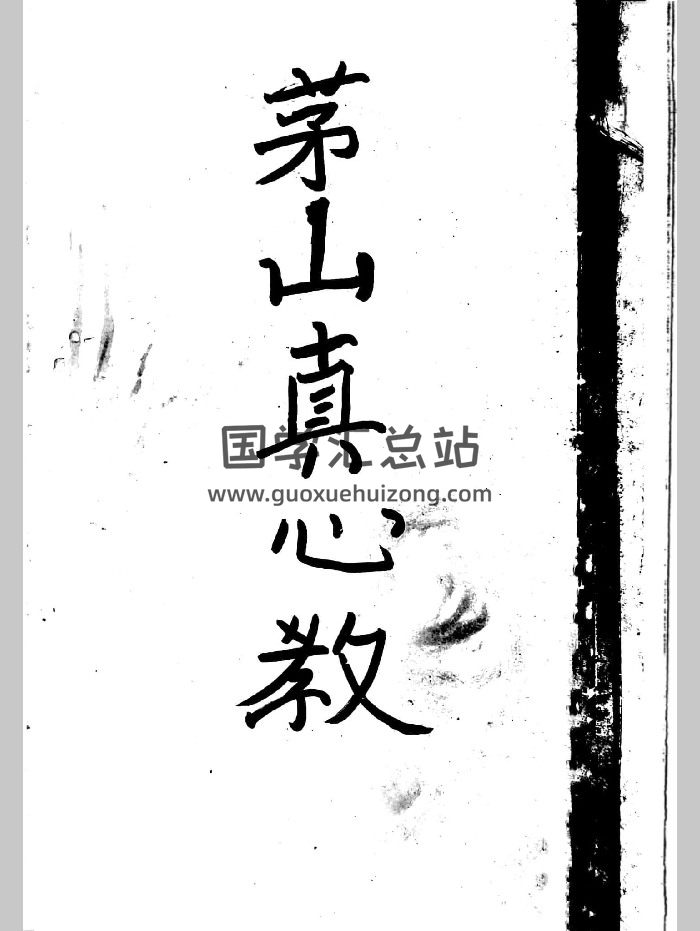 茅山真心教
国学汇总站
www.guoxuehuizong.com